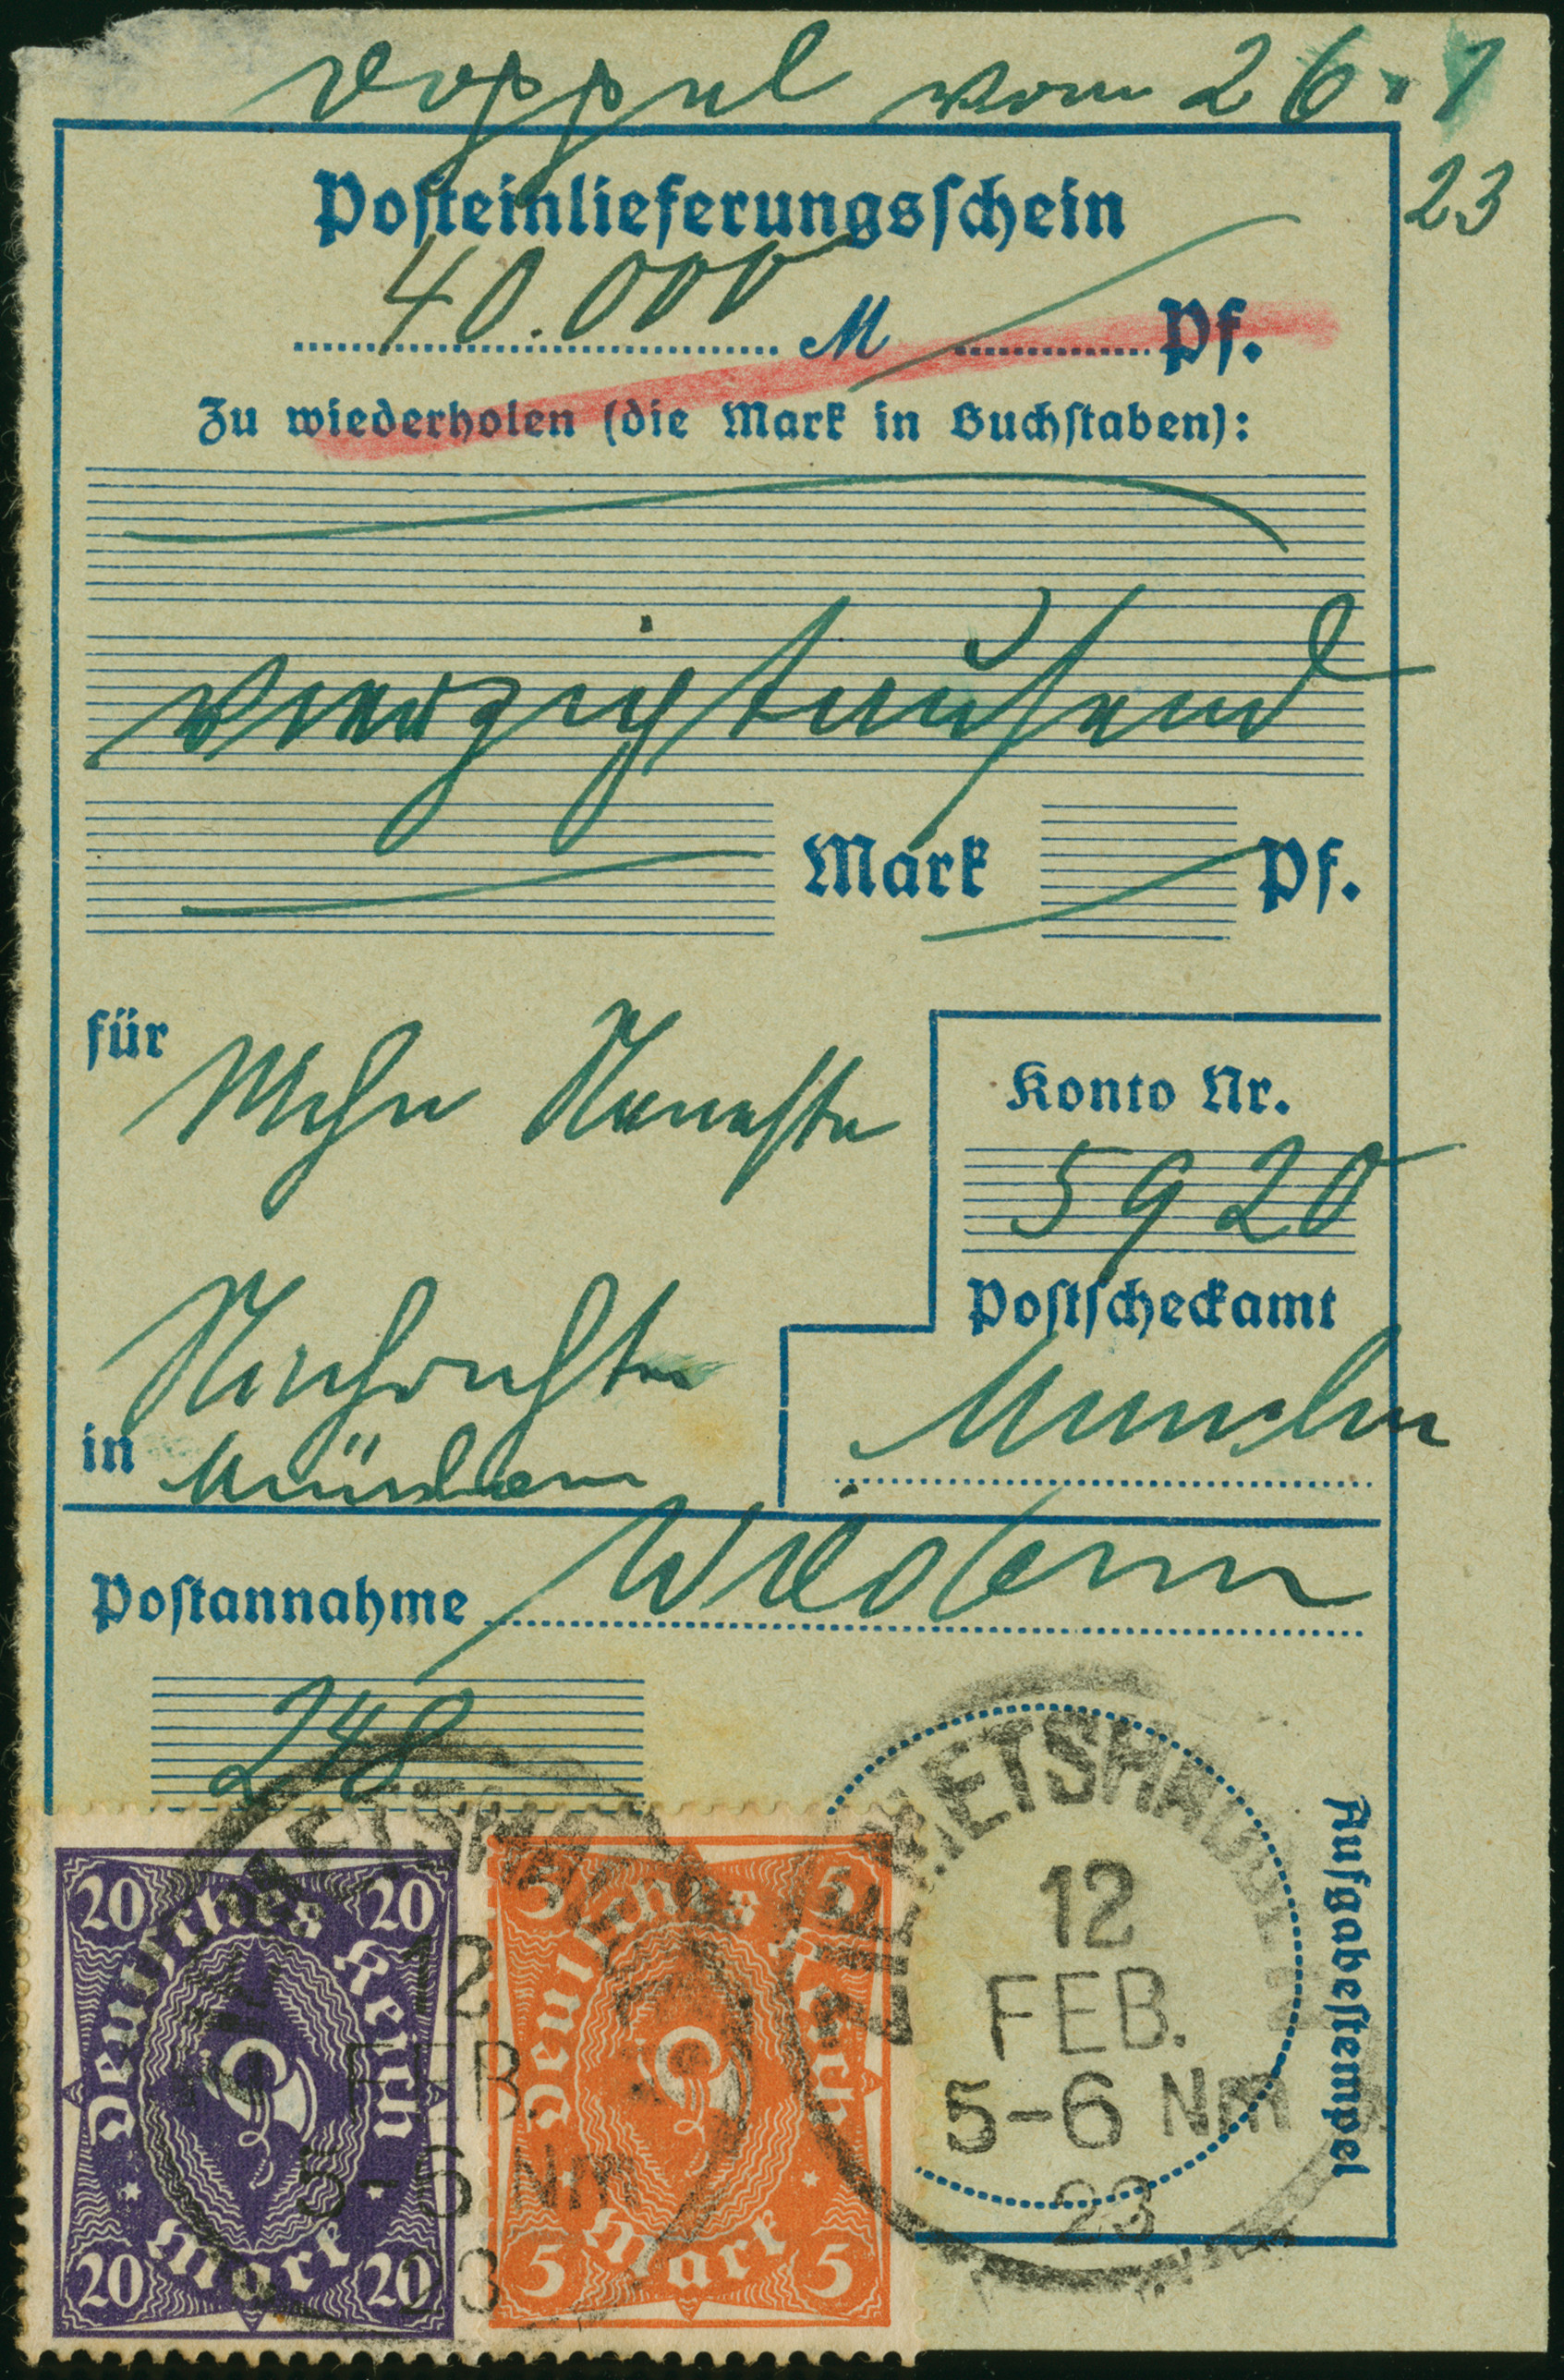 Doppel vom 26.1
23
Posteinlieferungsschein
40.000 M Pf.
Zu wiederholen (die Mark in Buchstaben):
vierzigtausend
Mark Pf.
für Mchn Neueste
Konto Nr.
5920
Postscheckamt
München
Nachrichten
in München
Postannahme
248
Aufgabestempel
12
FEB.
5-6 Nm
23
12
FEB.
5-6 Nm
23
20 20
Deutsches Reich
Mark
20 20
5 5
Deutsches Reich
Mark
5 5